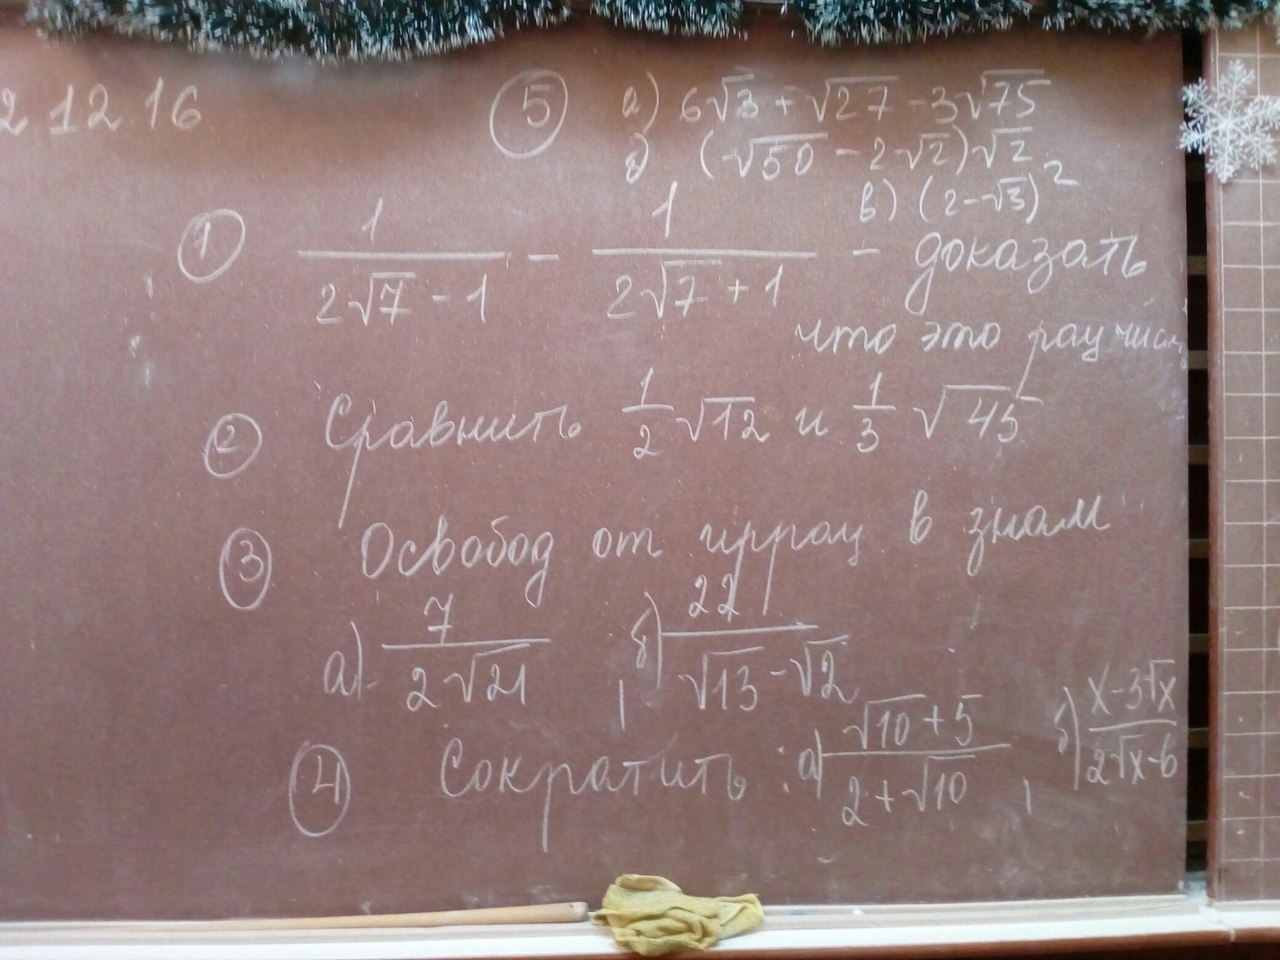 2 12 16
⑤ а) 6√3 + √27 - 3√75
б) (√50 - 2√2)√2
в) (2-√3)²
① 1/(2√7 - 1) - 1/(2√7 + 1) - доказать
что это рац числ
② Сравнить 1/2 √12 и 1/3 √45
③ Освобод от иррац в знам
а) 7/(2√21) , б) 22/(√13 - √2)
④ Сократить : а) (√10 + 5)/(2 + √10) , б) (x - 3√x)/(2√x - 6)